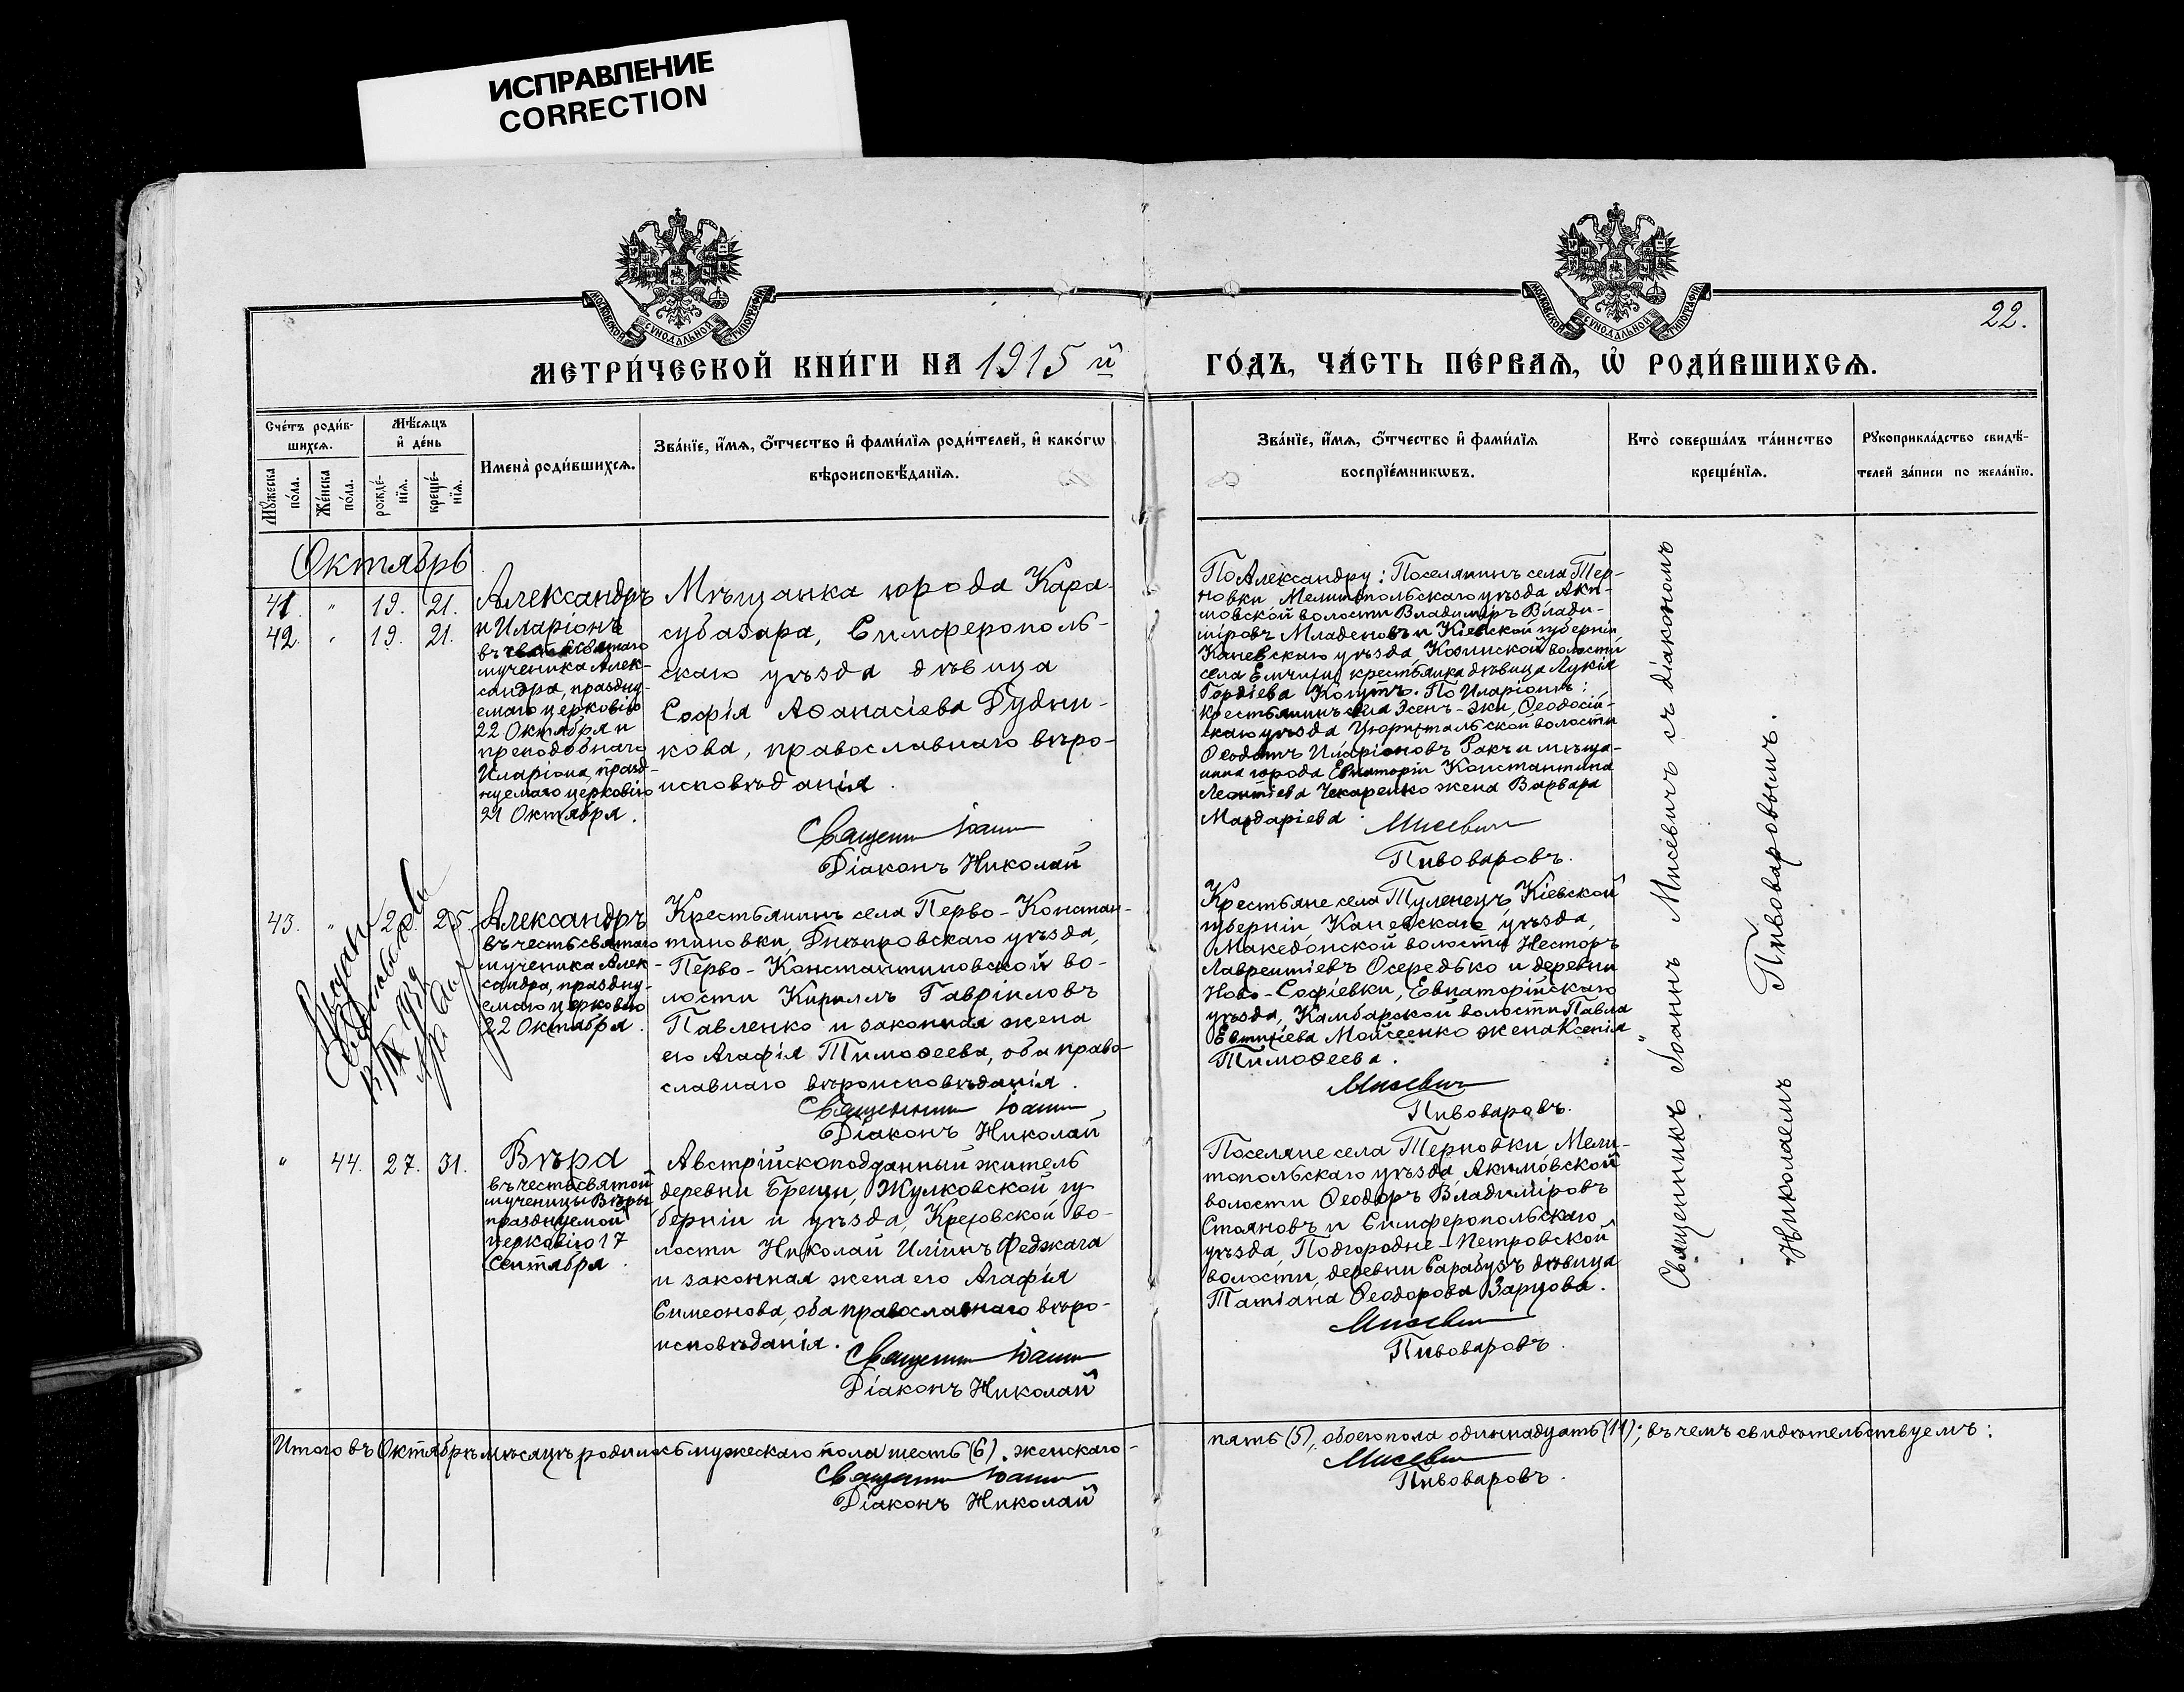 ИСПРАВЛЕНИЕ
CORRECTION
МОСКОВСКОЙ СѴНОДАЛЬНОЙ ТИПОГРАФІИ
МОСКОВСКОЙ СѴНОДАЛЬНОЙ ТИПОГРАФІИ
22.
МЕТРИ́ЧЕСКОЙ КНИ́ГИ НА 1915 й
ГО́ДЪ, ЧА́СТЬ ПЕ́РВАѦ, Ѡ҆ РОДИ́ВШИХСѦ.
Сче́тъ роди́в-
шихсѧ.
Мѣ́сѧцъ
и҆ де́нь
Мꙋ́жеска
по́ла.
Же́нска
по́ла.
рожде́-
нїѧ.
креще́-
нїѧ.
Имена̀ роди́вшихсѧ.
Зва́нїе, и҆́мѧ, ѻ҆́тчество и҆ фами́лїѧ роди́телей, и҆ како́гѡ
вѣроисповѣ́данїѧ.
Зва́нїе, и҆́мѧ, ѻ҆́тчество и҆ фами́лїѧ
воспрїе́мникѡвъ.
Кто̀ соверша́лъ та́инство
креще́нїѧ.
Рꙋкоприкла́дство свидѣ́-
телей за́писи по жела́нїю.
Октябрь
41. " 19. 21.
42. " 19. 21.
Александръ
и Иларіонъ
въ честь святаго
мученика Алек-
сандра, праздну-
емаго церковію
22 Октября и
преподобнаго
Иларіона, празд-
нуемаго церковію
21 Октября.
Мѣщанка города Кара-
субазара, Симферополь-
скаго уѣзда дѣвица
Софія Аѳанасіева Дудни-
кова, православнаго вѣро-
исповѣданія.
Священникъ Іоаннъ
Діаконъ Николай
По Александру: Поселянинъ села Тер-
новки Мелитопольскаго уѣзда Аки-
мовской волости Владиміръ Влади-
міровъ Младеновъ и Кіевской губерніи,
Каневскаго уѣзда Козинской волости
села крестьянка дѣвица Лукія
Гордіева По Иларіонъ:
крестьянинъ села Эсенъ-эки, Ѳеодосій-
скаго уѣзда Цюрихтальской волости
Ѳеодотъ Иларіоновъ Ракъ и мѣща-
нина города Евпаторіи Константина
Леонтіева Чекаренко жена Варвара
Мардаріева.
Мисевичъ
Пивоваровъ.
43. " 22. 25.
Александръ
въ честь святаго
мученика Алек-
сандра, праздну-
емаго церковію
22 Октября.
Крестьянинъ села Перво-Констан-
тиновки, Днѣпровскаго уѣзда,
Перво-Константиновской во-
лости Кириллъ Гавріиловъ
Павленко и законная жена
его Агафія Тимоѳеева, оба право-
славнаго вѣроисповѣданія.
Священникъ Іоаннъ
Діаконъ Николай
Крестьяне села Тулинецъ Кіевской
губерніи, Каневскаго уѣзда,
Македонской волости Несторъ
Лаврентіевъ Осередько и деревни
Ново-Софіевки, Евпаторійскаго
уѣзда, Камбарской волости Павла
Евтихіева Мойсеенко жена Ксенія
Тимоѳеева.
Мисевичъ
Пивоваровъ.
" 44. 27. 31.
Вѣра
въ честь святой
мученицы Вѣры
празднуемой
церковію 17
Сентября.
Австрійскоподданный житель
деревни Брещи, Жулковской гу-
берніи и уѣзда, Креховской во-
лости Николай Иліинъ Феджага
и законная жена его Агафія
Симеонова, оба православнаго вѣро-
исповѣданія.
Священникъ Іоаннъ
Діаконъ Николай
Поселяне села Терновки Мели-
топольскаго уѣзда, Акимовской
волости Ѳеодоръ Владиміровъ
Стояновъ и Симферопольскаго
уѣзда, Подгородне-Петровской
волости, деревни Сарабузъ дѣвица
Татіана Ѳеодорова Зарцова.
Мисевичъ
Пивоваровъ.
Священникъ Іоаннъ Мисевичъ съ діакономъ
Николаемъ Пивоваровымъ.
Итого въ Октябрѣ мѣсяцѣ родилось мужескаго пола шесть (6), женскаго-
пять (5), обоего пола одиннадцать (11); въ чемъ свидѣтельствуемъ:
Священникъ Іоаннъ
Мисевичъ
Діаконъ Николай
Пивоваровъ.